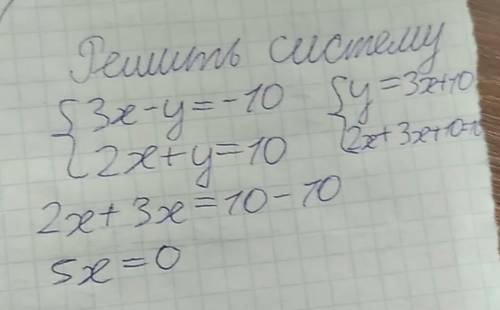 Решить систему
{3x-y=-10
{2x+y=10
{y=3x+10
{2x+3x+10=10
2x+3x=10-10
5x=0